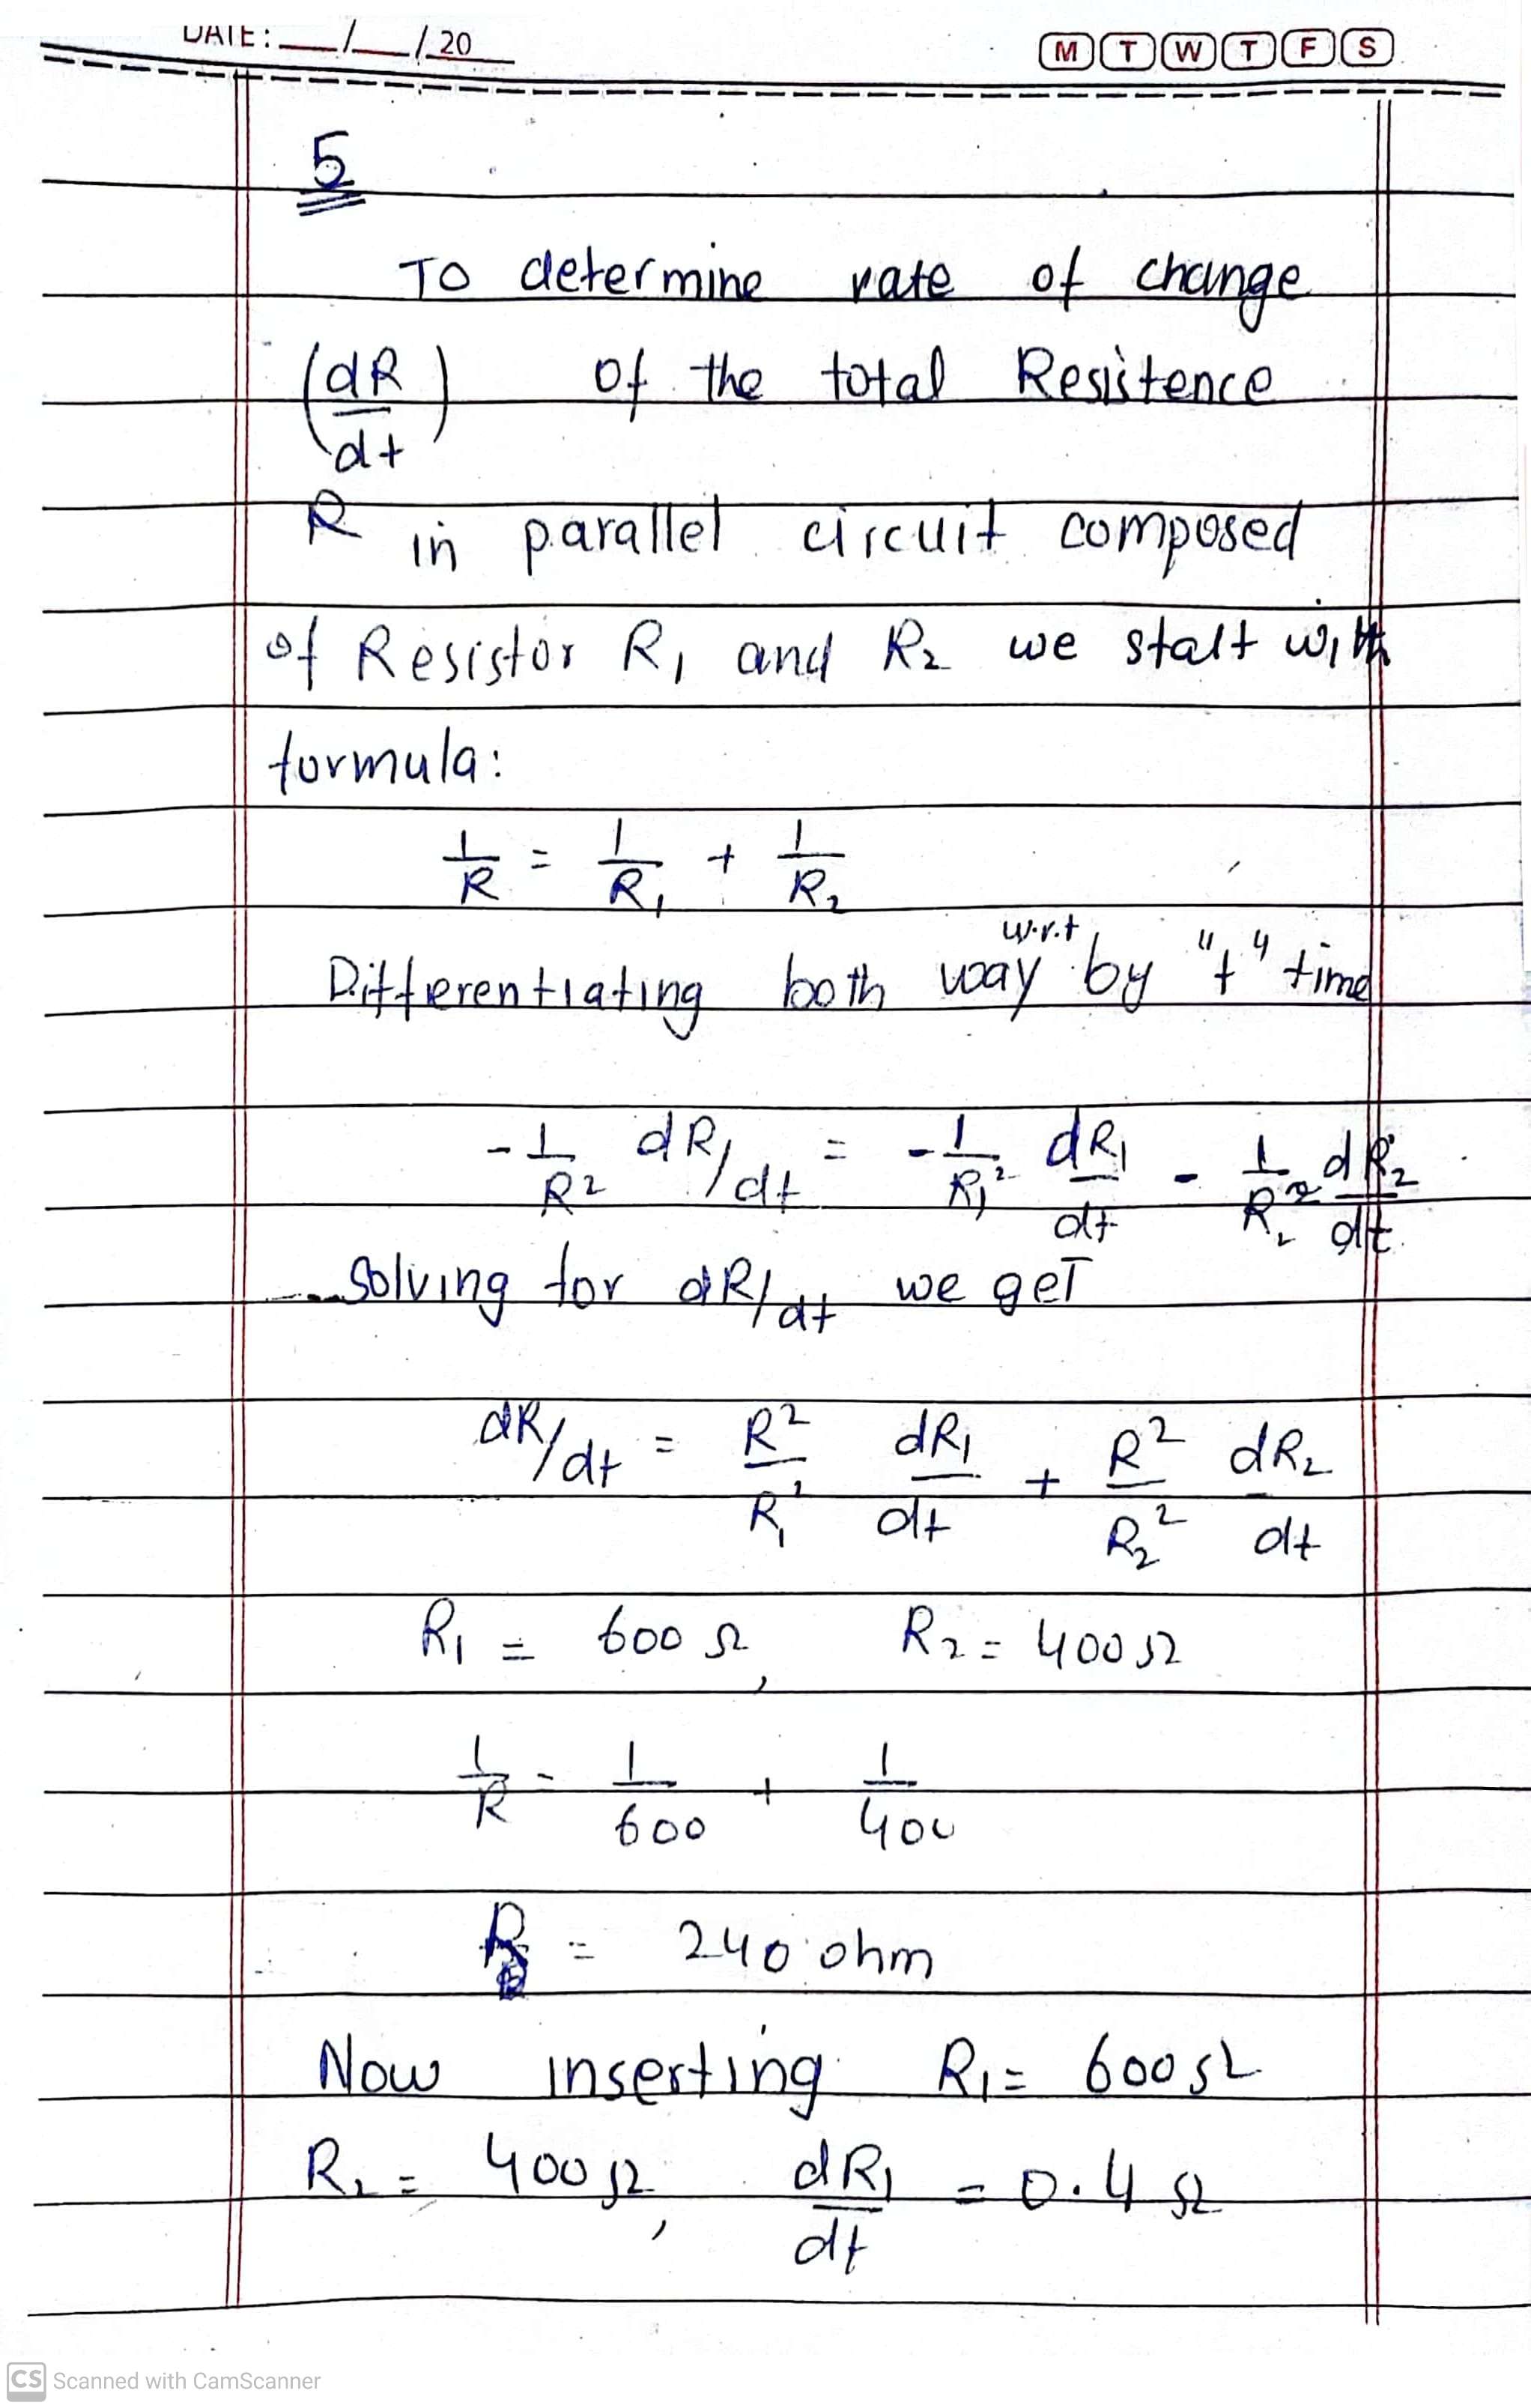 DATE: __/__/20__ M T W T F S
5
To determine rate of change
(dR/dt) of the total Resistence
R in parallel circuit composed
of Resistor R₁ and R₂ we start with
formula:
1/R = 1/R₁ + 1/R₂
w.r.t
Differentiating both way by "t" time
-1/R² dR/dt = -1/R₁² dR₁/dt - 1/R₂² dR₂/dt
solving for dR/dt we get
dR/dt = R²/R₁² dR₁/dt + R²/R₂² dR₂/dt
R₁ = 600 Ω, R₂ = 400 Ω
1/R = 1/600 + 1/400
R = 240 ohm
Now inserting R₁ = 600 Ω
R₂ = 400 Ω, dR₁/dt = 0.4 Ω
CS Scanned with CamScanner